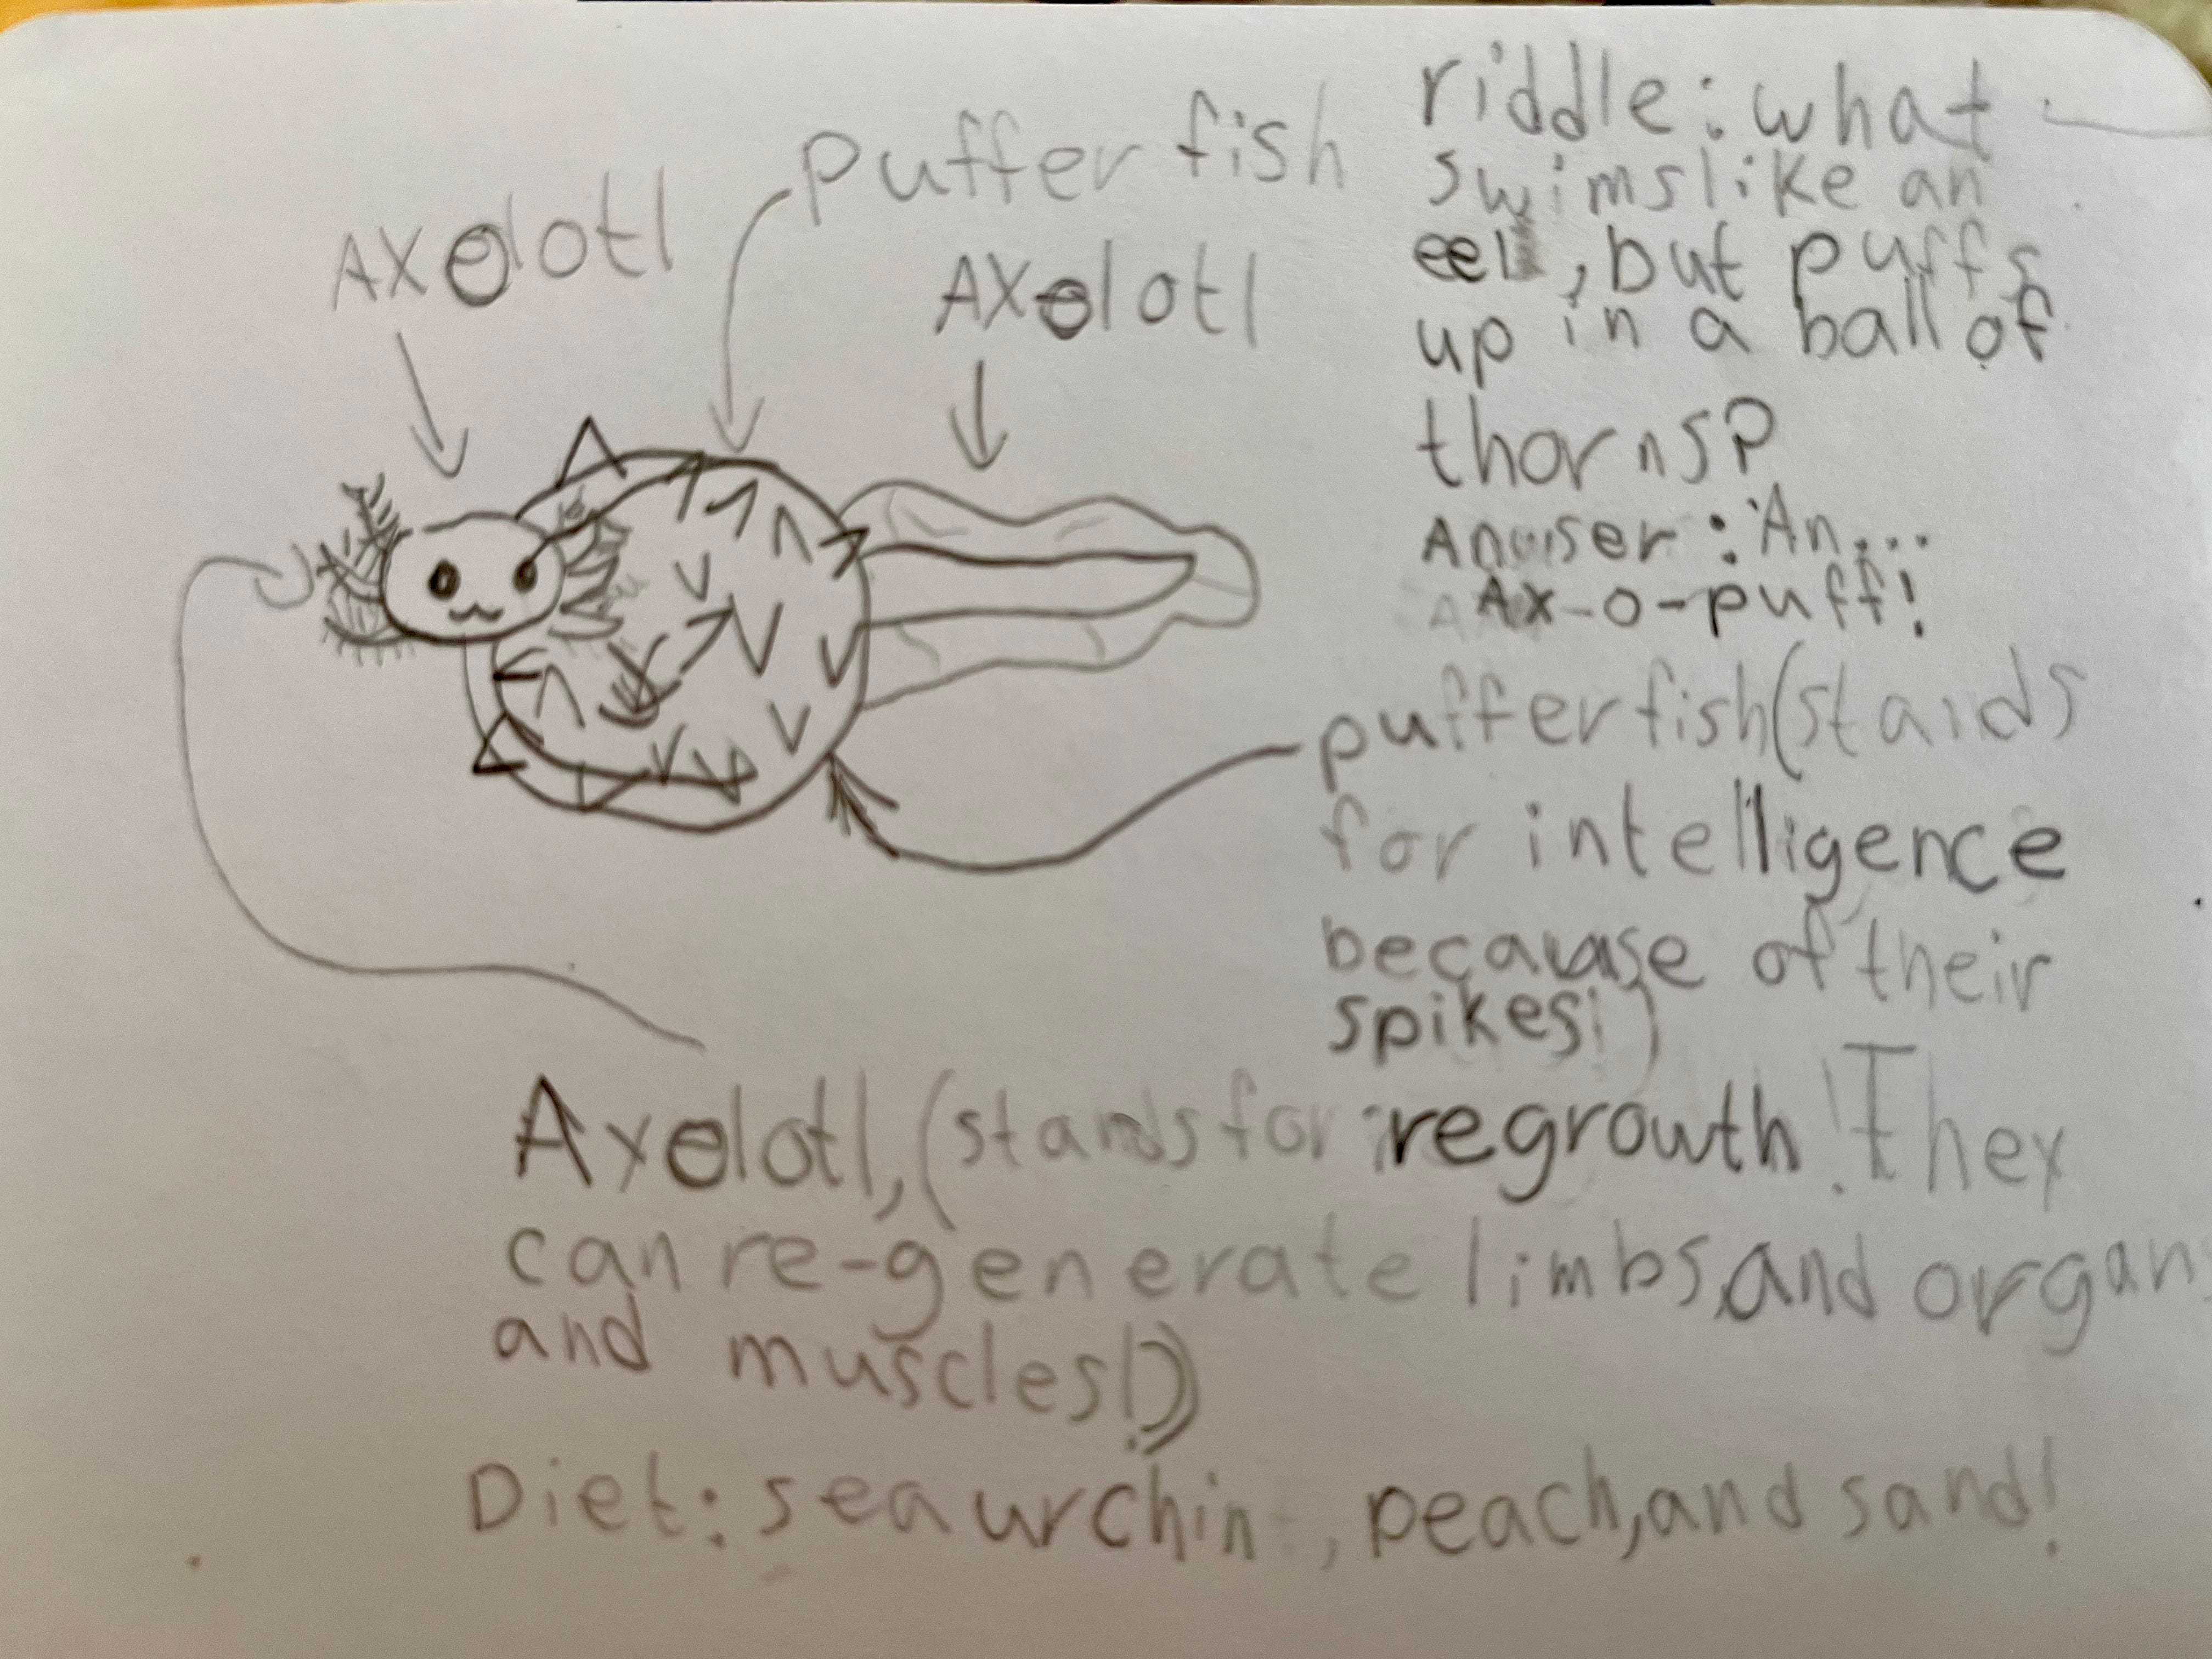 Axolotl
Puffer fish
Axolotl
riddle: what
swims like an
eel, but puffs
up in a ball of
thorns?
Anwser: An...
Ax-o-puff!
pufferfish (stands
for intelligence
because of their
spikes!)
Axolotl, (stands for regrowth! They
can re-generate limbs, and organs
and muscles!)
Diet: sea urchin, peach, and sand!